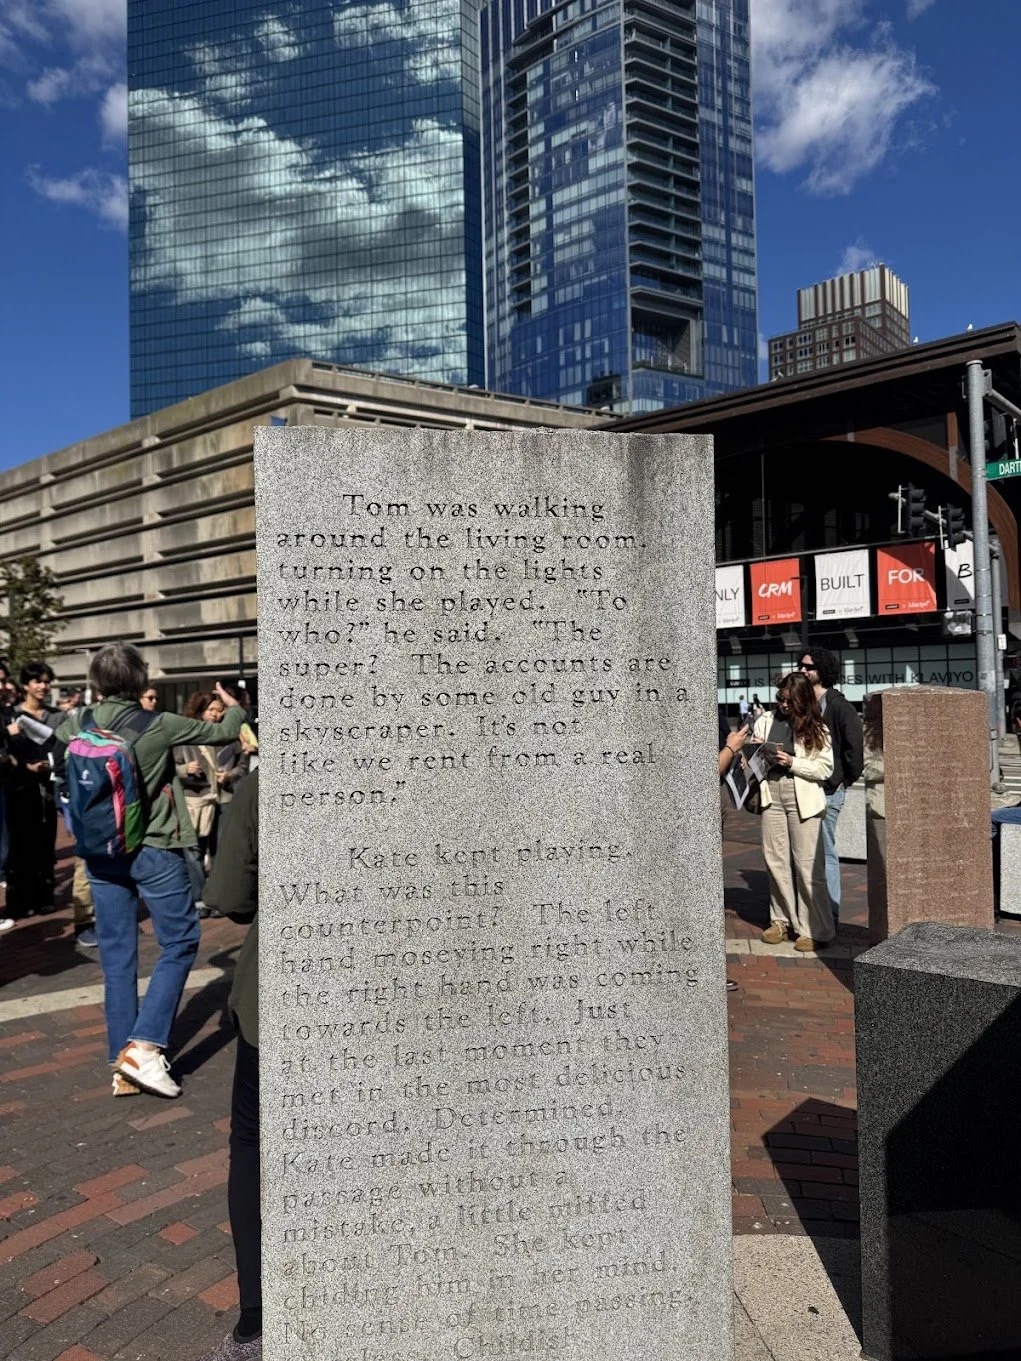 Tom was walking
around the living room,
turning on the lights
while she played. "To
who?" he said. "The
super? The accounts are
done by some old guy in a
skyscraper. It's not
like we rent from a real
person."
Kate kept playing.
What was this
counterpoint? The left
hand moseying right while
the right hand was coming
towards the left. Just
at the last moment they
met in the most delicious
discord. Determined,
Kate made it through the
passage without a
mistake, a little miffed
about Tom. She kept
chiding him in her mind.
No sense of time passing,
Childish
NLY
CRM
BUILT
FOR
B
WITH KLAVIYO
DART